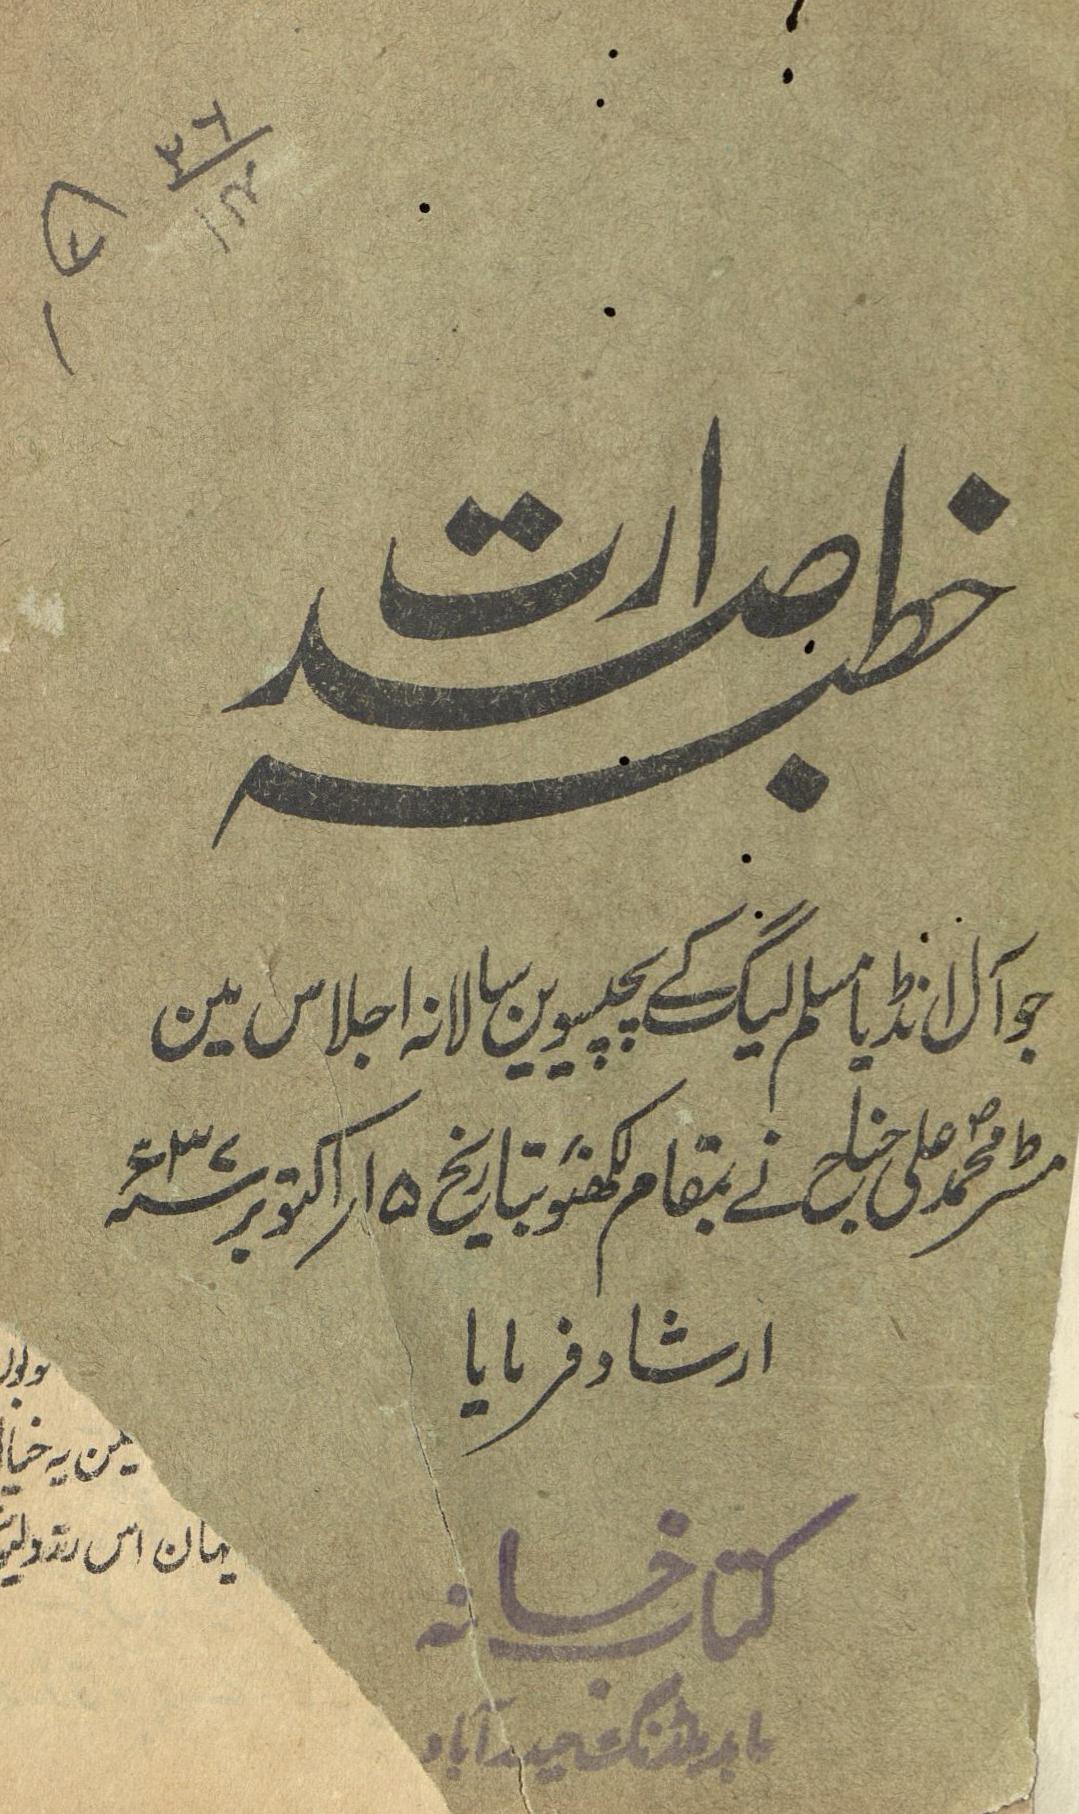 خطبہ صدارت
جو آل انڈیا مسلم لیگ کے پچیسوین سالانہ اجلاس مین
مسٹر محمد علی جناح نے بمقام لکھنؤ بتاریخ ۱۵ اکتوبر ۱۹۳۷ء
ارشاد فرمایا
یہ خیال
یہان اس
کتاب خانہ
بلڈنگ حیدرآباد